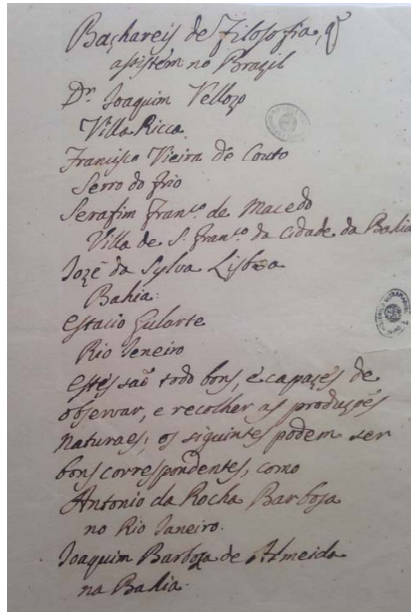 Bachareis de Filosofia, q̃
asistem no Brazil
Dr. Joaquim Vellozo
Villa Ricca
Francisco Vieira de Couto
Serro do frio
Serafim Franco. de Macedo
Villa de S. Franco. da Cidade da Bahia
Jozé da Sylva Lisboa
Bahia.
Estacio Gularte
Rio Ieneiro
estes saõ todo bons, e capazes de
observar, e recolher as produções
naturaes; os siguintes podem ser
bons correspondentes, como
Antonio da Rocha Barboza
no Rio Janeiro.
Joaquim Barboza de Almeida
na Bahia.